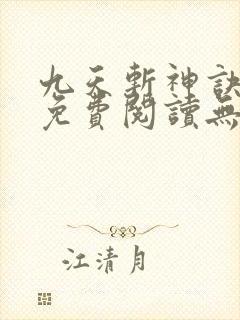 九天斬神訣
免費閱讀無
江清月